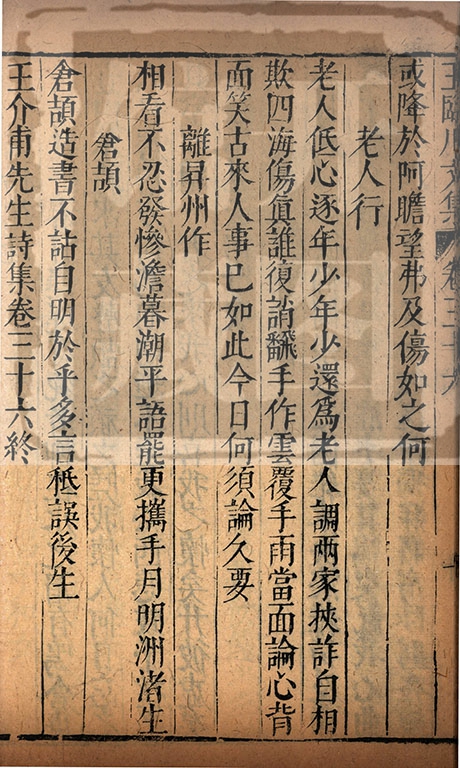 王臨川文集 卷三十六
或降於阿瞻望弗及傷如之何
老人行
老人低心逐年少年少還爲老人調兩家挾詐自相
欺四海傷眞誰復誚翻手作雲覆手雨當面論心背
面笑古來人事已如此今日何須論久要
離昇州作
相看不忍發慘澹暮潮平語罷更攜手月明洲渚生
倉頡
倉頡造書不詁自明於乎多言秪誤後生
王介甫先生詩集卷三十六終